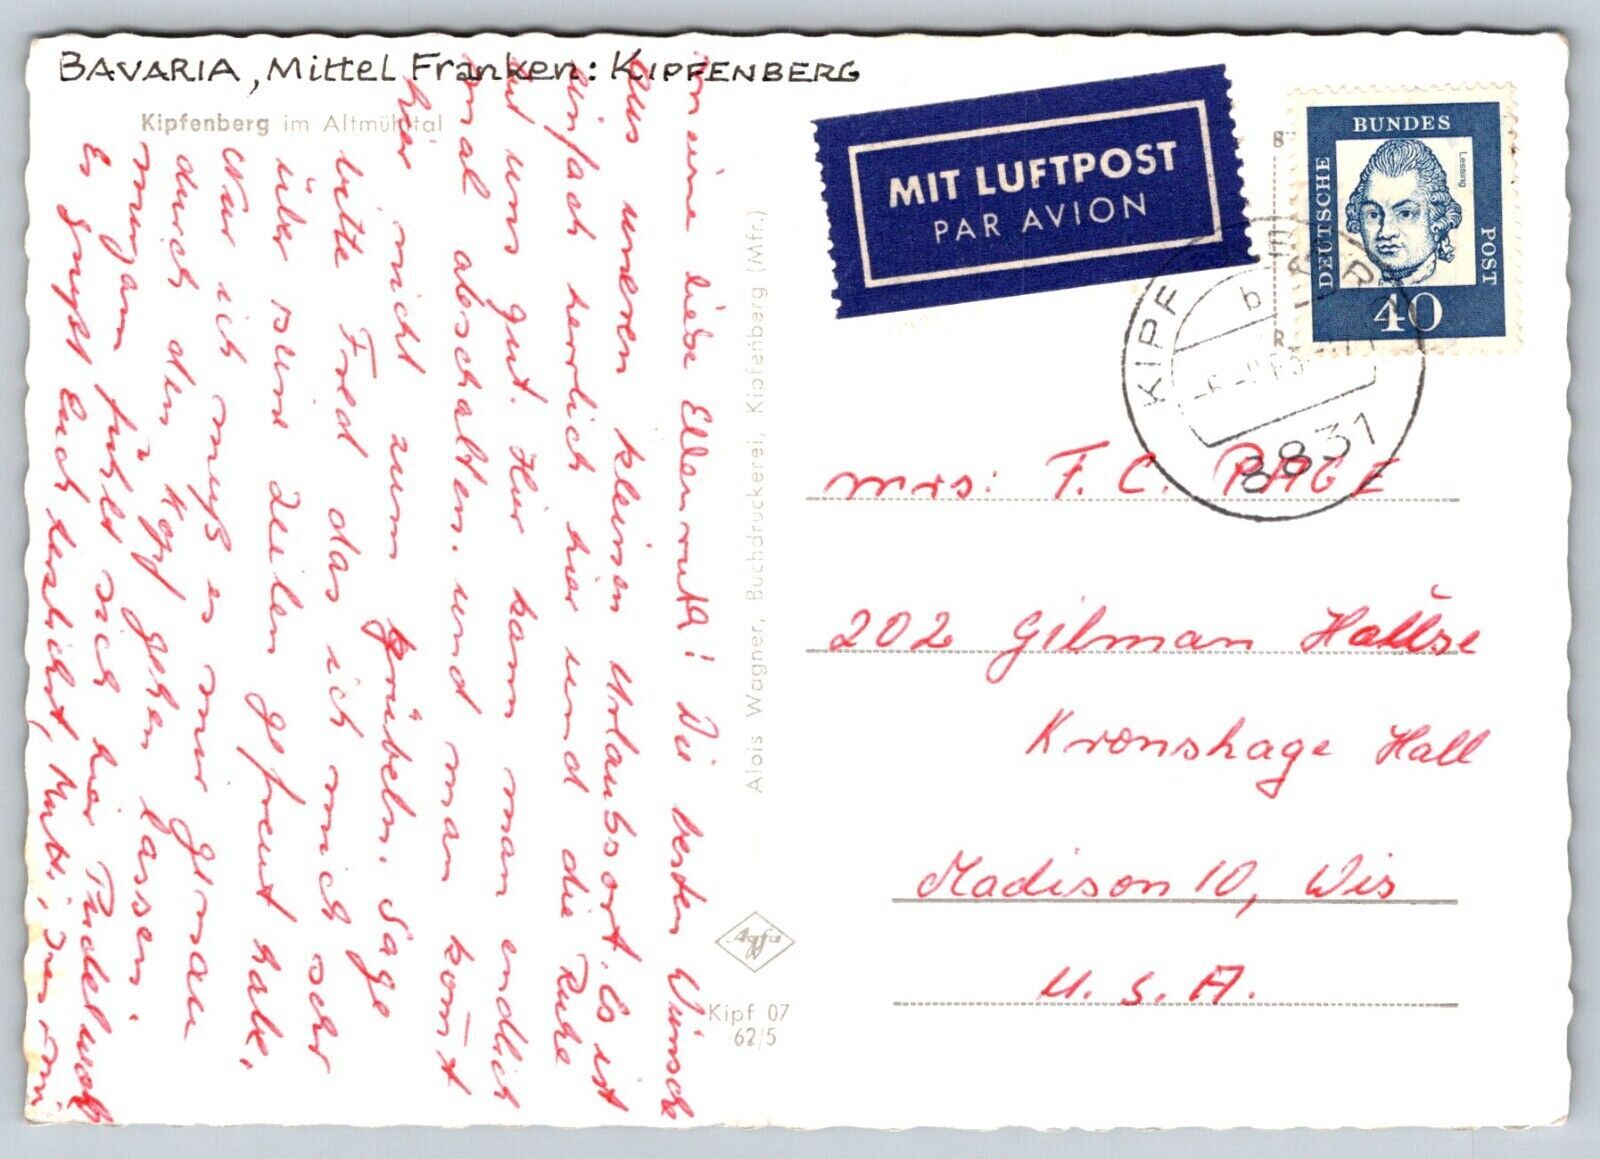 BAVARIA, Mittel Franken: KIPFENBERG
Kipfenberg im Altmühltal
Meine liebe Ellenruth! Die besten Wünsche
aus unseren kleinen Urlaubsort. Es ist
einfach herrlich hier und die Ruhe
tut uns gut. Hier kann man endlich
mal abschalten. und man kom̄t
hier nicht zum grübeln. Sage
bitte Fred das ich mich sehr
über seine Zeilen gefreut habe.
Nur ich muß es mir genau
durch den Kopf gehen lassen.
fühlt sich hier Pudelwohl
Es grüßt Euch herzlichst, Mutti
Alois Wagner, Buchdruckerei, Kipfenberg (Mfr.)
Agfa
Kipf 07
62/5
MIT LUFTPOST
PAR AVION
DEUTSCHE
BUNDES
POST
Lessing
40
KIPF
b
8831
mrs: F. C. PAGE
202 Gilman House
Kronshage Hall
Madison 10, Wis
U. S. A.